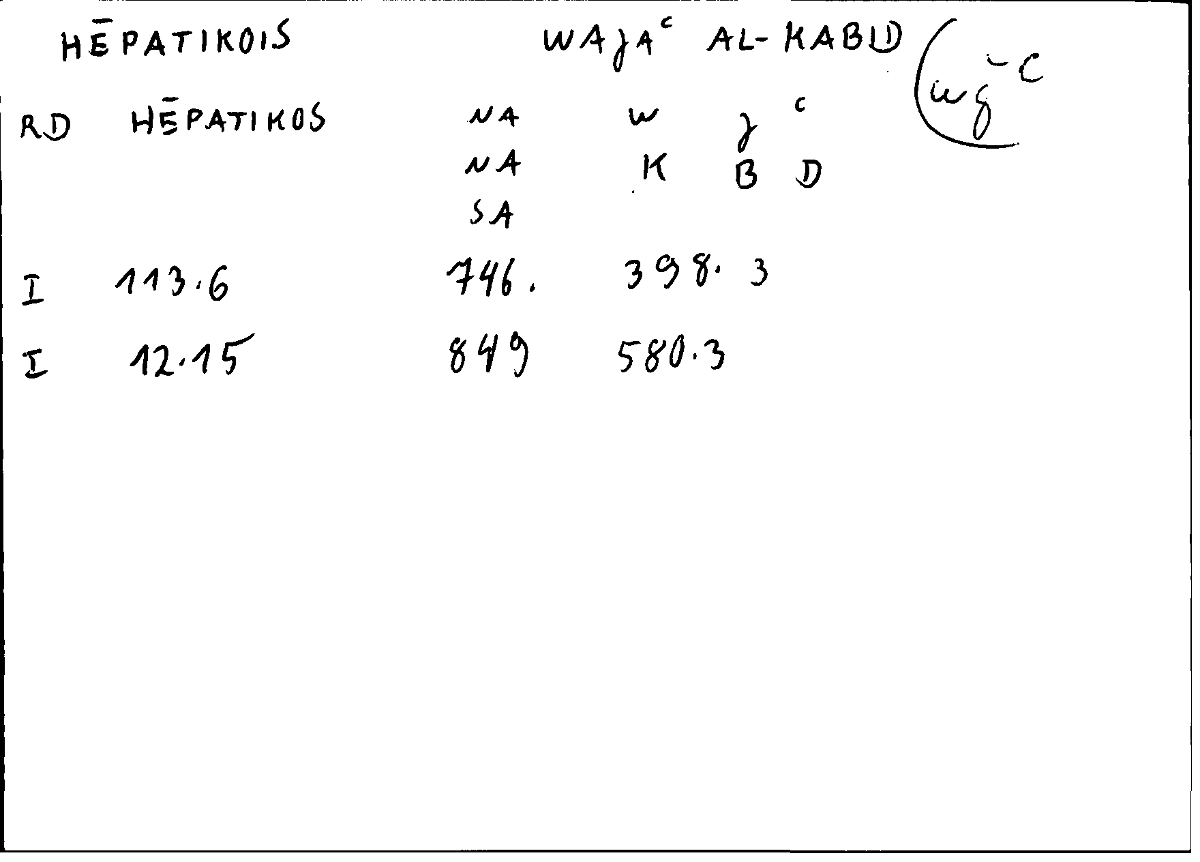 HĒPATIKOIS WAJAᶜ AL-KABID (wǧᶜ
RD HĒPATIKOS NA W J ᶜ
NA K B D
SA
I 113.6 746. 398. 3
I 12.15 849 580.3